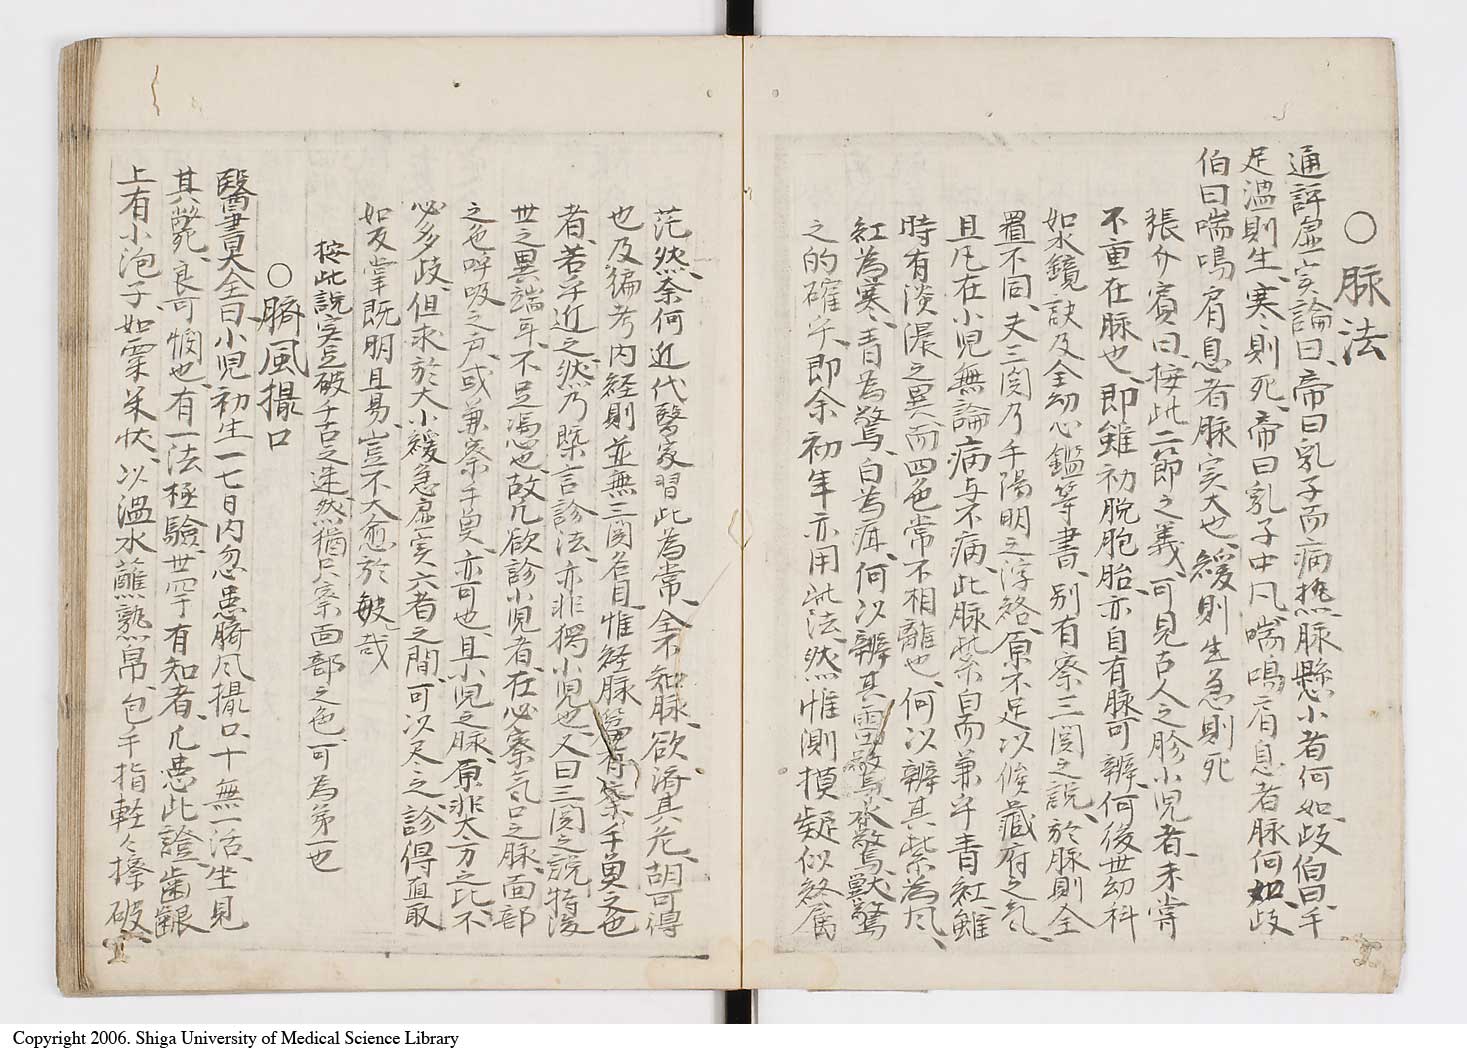 ○脈法
通評虚実論曰、帝曰乳子而病熱脈懸小者何如、歧伯曰、手
足温則生、寒則死、帝曰乳子中風喘鳴肩息者脈何如、歧
伯曰喘鳴肩息者脈実大也、緩則生急則死
張介賓曰、按此二節之義、可見古人之診小児者、未嘗
不重在脈也、即雖初脱胞胎、亦自有脈可辨、何後世幼科
如水鏡訣及全幼心鑑等書、別有察三関之説、於脈則全
置不同、夫三関乃手陽明之浮絡、原不足以候蔵府之気、
且凡在小児無論病与不病、此脈紫白而兼乎青紅雖
時有淡濃之異而四色常不相離也、何以辨其紫為風、
紅為寒、青為驚、白為疳、何以辨其雷驚水驚獣驚
之的確乎、即余初年亦用此法、然惟測摸疑似終属
茫然、奈何近代醫家習此為常、全不知脈、欲済其危、胡可得
也及徧考内経則並無三関名目、惟経脈篇有察手魚之色
者、若乎近之、然乃概言診法、亦非獨小児也、又曰三関之説特後
世之異端耳、不足憑也、故凡欲診小児者、在必察気口之脈、面部
之色呼吸之声、或兼察手魚亦可也、且小児之脈、原非大方之比、不
必多歧、但求於大小緩急虚実六者之間、可以尽之、診得直取
如反掌既明且易、豈不大愈於彼哉
按此説実足破千古之迷、然猶只察面部之色、可為第一也
○臍風撮口
醫書大全曰、小児初生一七日内忽患臍風撮口、十無一活、坐見
其斃、良可憫也、有一法極驗、世罕有知者、凡患此證、歯齦
上有小泡子如粟米状、以温水蘸熟帛、包手指軽々擦破、